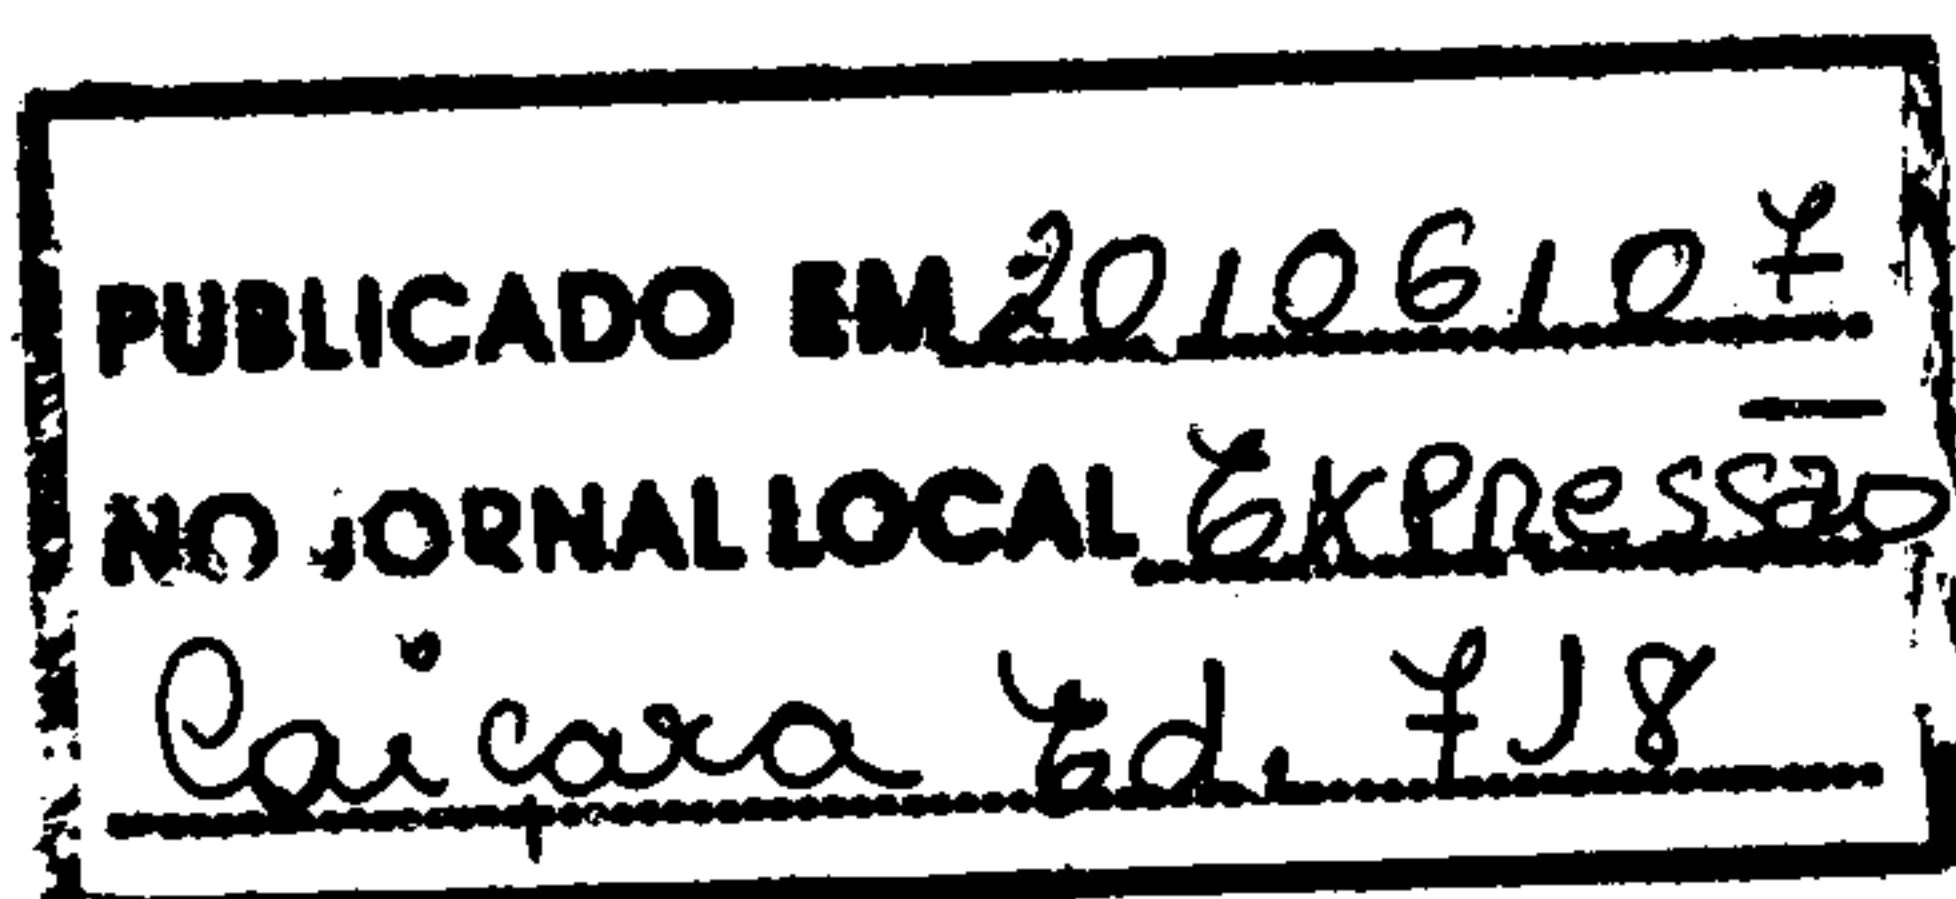 PUBLICADO EM 20/06/07
NO JORNAL LOCAL Expressão
Caiçara Ed. 718